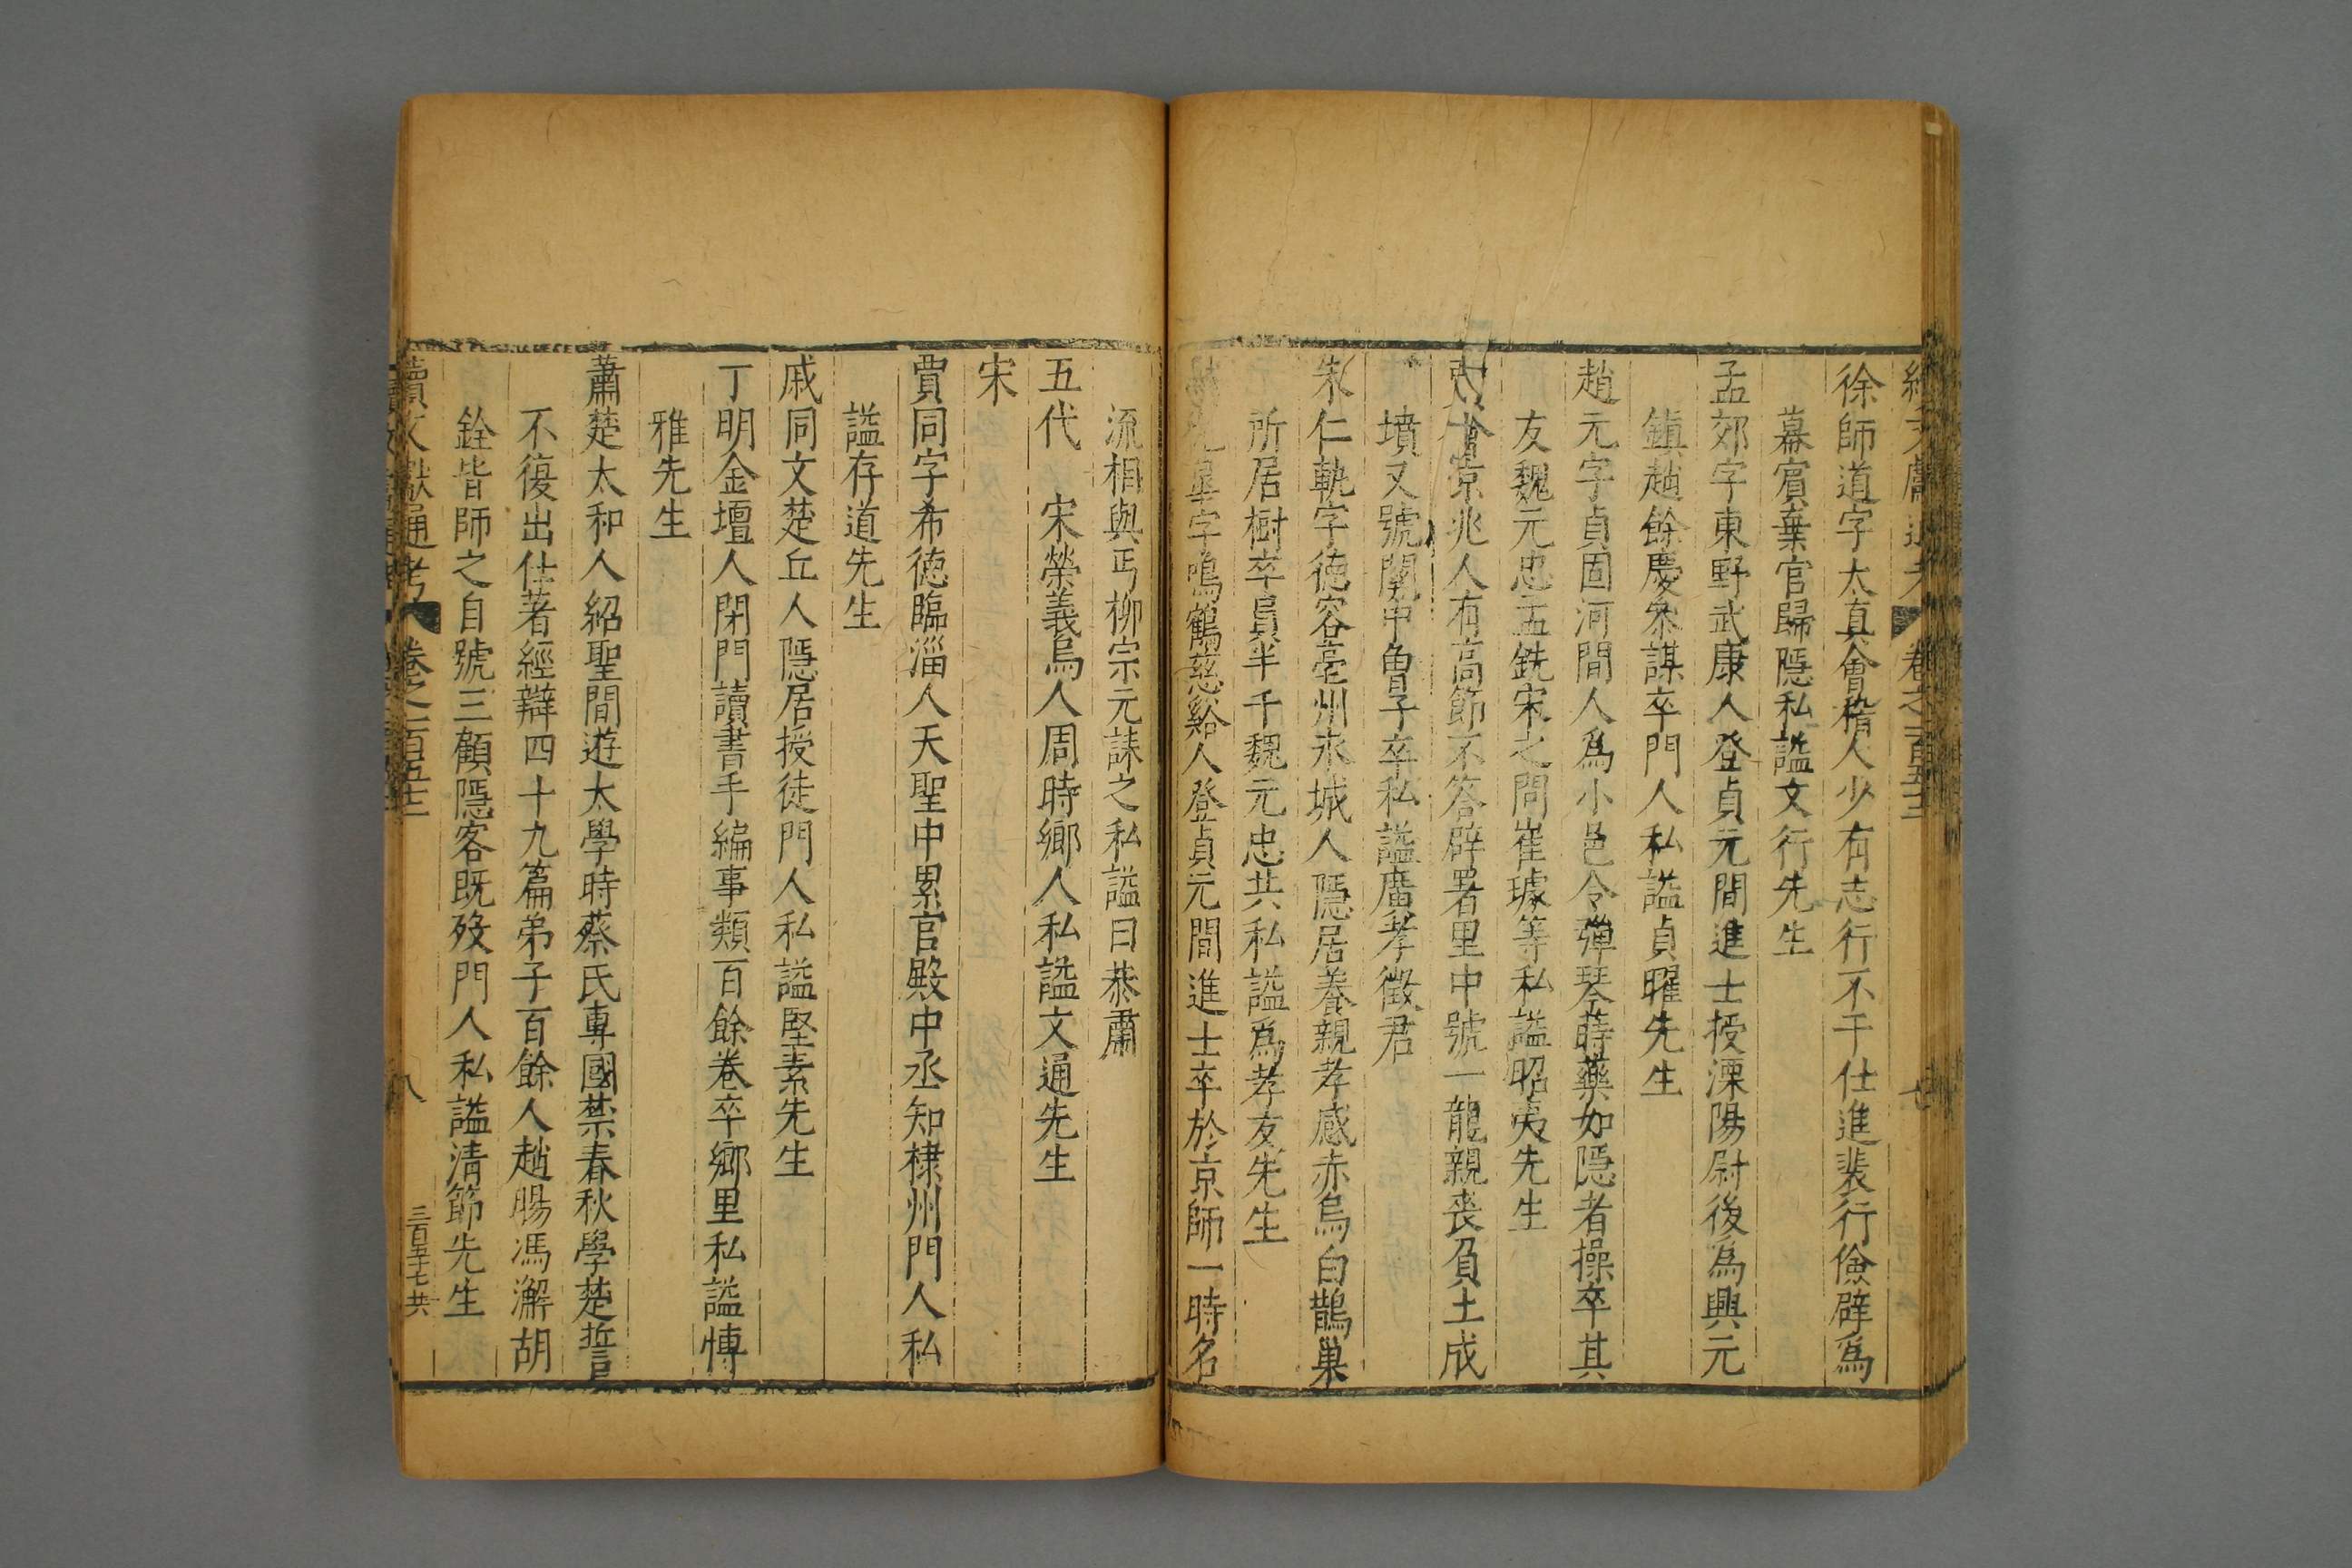 徐師道字太真會稽人少有志行不干仕進裴行儉辟爲
幕賓棄官歸隱私諡文行先生
孟郊字東野武康人登貞元間進士授溧陽尉後爲興元
鎮趙餘慶叅謀卒門人私諡貞曜先生
趙元字貞固河間人爲小邑令彈琴蒔藥如隱者操卒其
友魏元忠孟銑宋之問崔璩等私諡昭夷先生
京兆人有高節不答辟署里中號一龍親喪負土成
墳又號關中曾子卒私諡廣孝徵君
朱仁軌字德容亳州永城人隱居養親孝感赤烏白鵲巢
所居樹卒員半千魏元忠共私諡爲孝友先生
皐字鳴鶴慈谿人登貞元間進士卒於京師一時名
流相與丐柳宗元誄之私諡曰恭肅
五代 宋榮義烏人周時鄉人私諡文通先生
宋
賈同字希德臨淄人天聖中累官殿中丞知棣州門人私
諡存道先生
戚同文楚丘人隱居授徒門人私諡堅素先生
丁明金壇人閉門讀書手編事類百餘卷卒鄉里私諡愽
雅先生
蕭楚太和人紹聖間遊太學時蔡氏專國禁春秋學楚誓
不復出仕著經辯四十九篇弟子百餘人趙暘馮澥胡
銓皆師之自號三顧隱客既歿門人私諡清節先生
續文獻通考 卷之一百五十三 八 三百五十七共